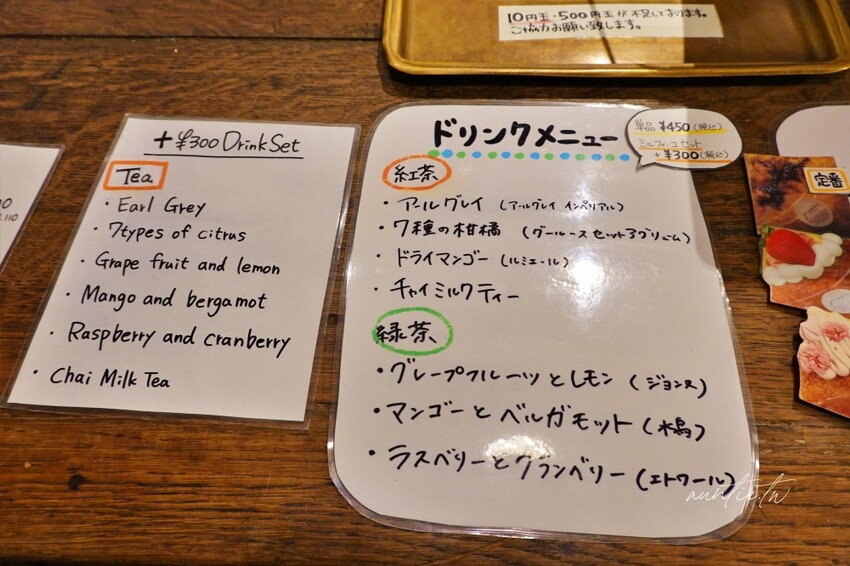 10円玉・500円玉が不足しております。
ご協力お願い致します。
+¥300 Drink Set
Tea
・Earl Grey
・7types of citrus
・Grape fruit and lemon
・Mango and bergamot
・Raspberry and cranberry
・Chai Milk Tea
ドリンクメニュー
単品 ¥450(税込)
ミルフィーユセット
+¥300(税込)
紅茶
・アールグレイ (アールグレイ インペリアル)
・7種の柑橘 (グールースセットアグリューム)
・ドライマンゴー (ルミエール)
・チャイミルクティー
緑茶
・グレープフルーツとレモン (ジョンヌ)
・マンゴーとベルガモット
・ラスベリーとクランベリー (エトワール)
定番
auntie.tw